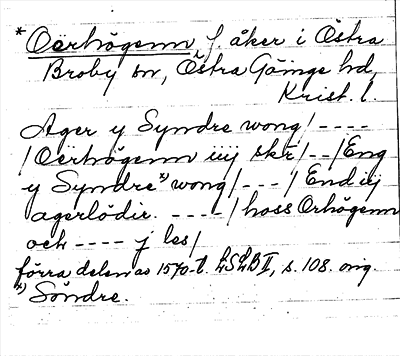 * Oërhögenn, f. åker i Östra
Broby sn, Östra Göinge hd,
Krist. l.
Ager y Syndre wong/ ----
/Oërhögenn iiij skr/--/Eng
y Syndre x) wong/---/ End iij
agerlödir. ----/hoss Orhögenn
och ---- j les/
förra delen av 1570-t. LSLB II, s. 108. orig.
x) Söndre.